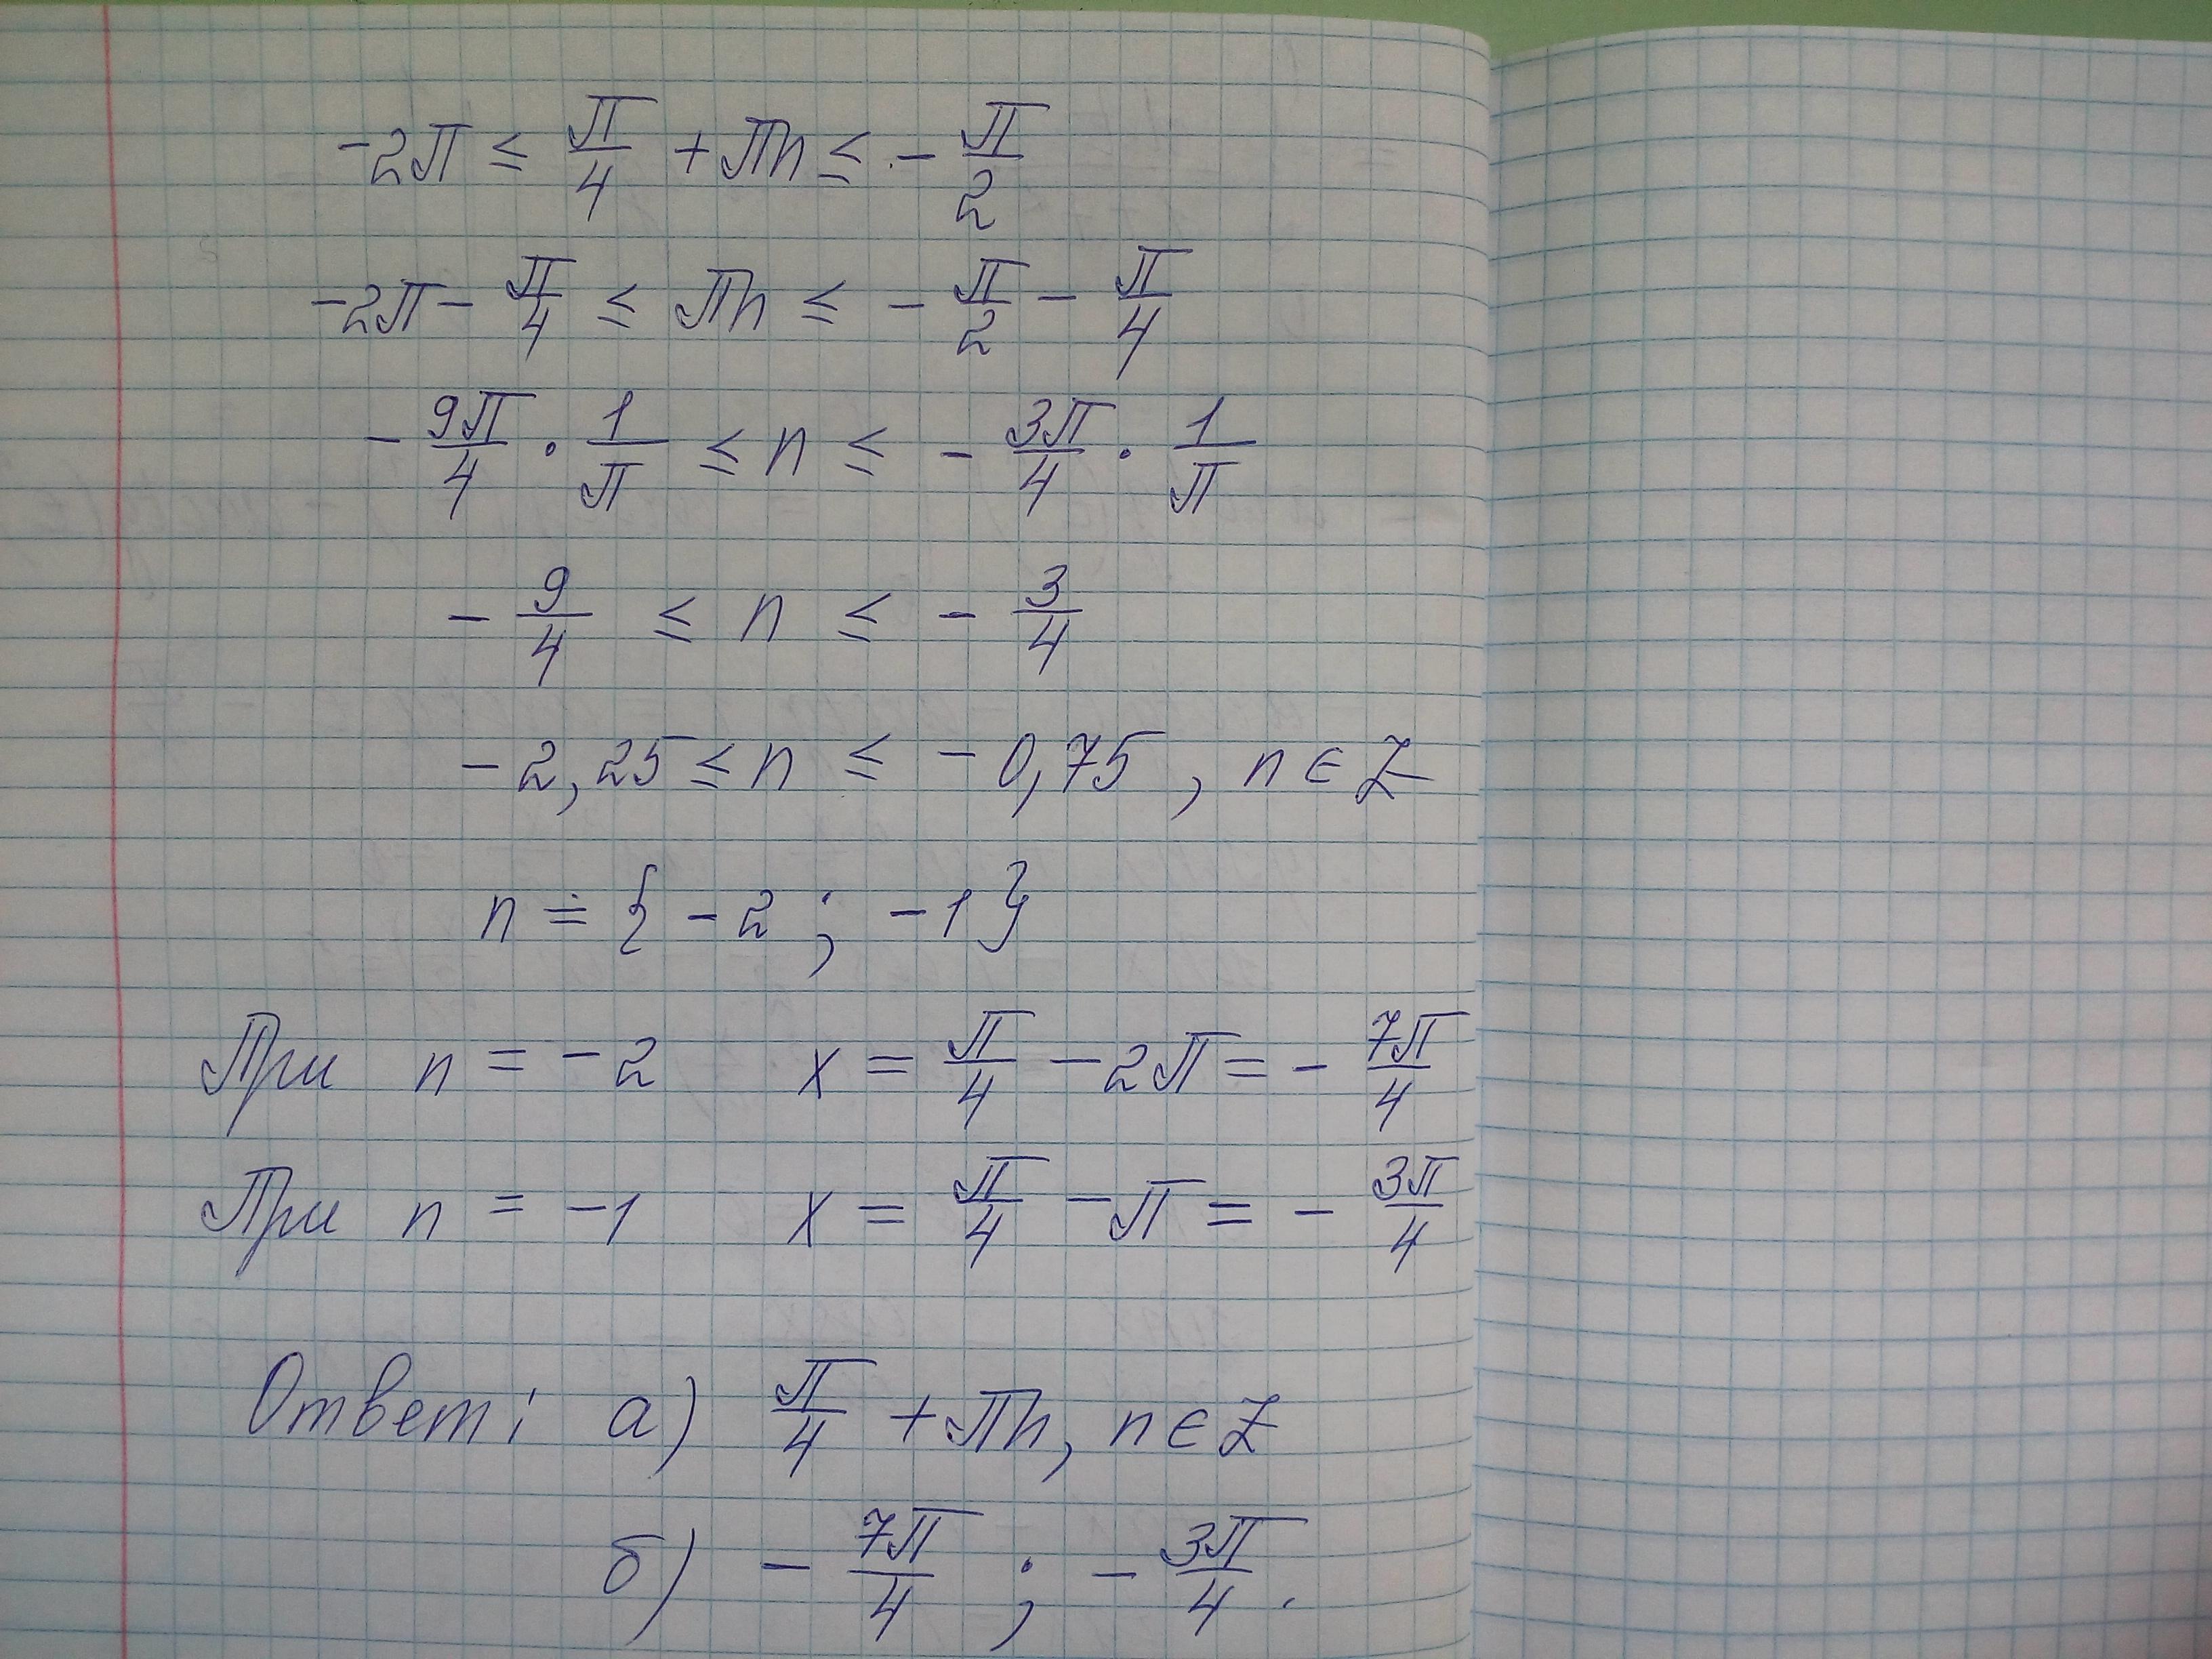 -2π ≤ π/4 + πn ≤ - π/2
-2π - π/4 ≤ πn ≤ - π/2 - π/4
- 9π/4 · 1/π ≤ n ≤ - 3π/4 · 1/π
- 9/4 ≤ n ≤ - 3/4
-2,25 ≤ n ≤ -0,75, n ∈ Z
n = {-2; -1}
При n = -2 x = π/4 - 2π = - 7π/4
При n = -1 x = π/4 - π = - 3π/4
Ответ: а) π/4 + πn, n ∈ Z
б) - 7π/4; - 3π/4.